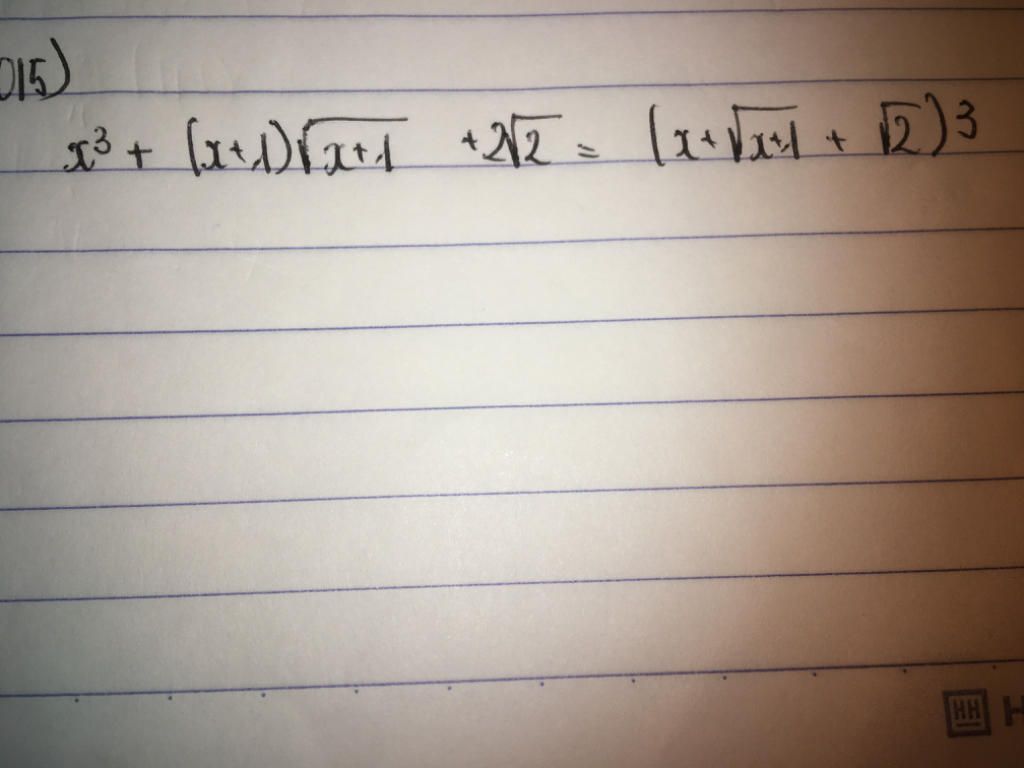 015)
x³ + (x+1)√(x+1) +2√2 = (x+√(x+1) + √2)³
HH H